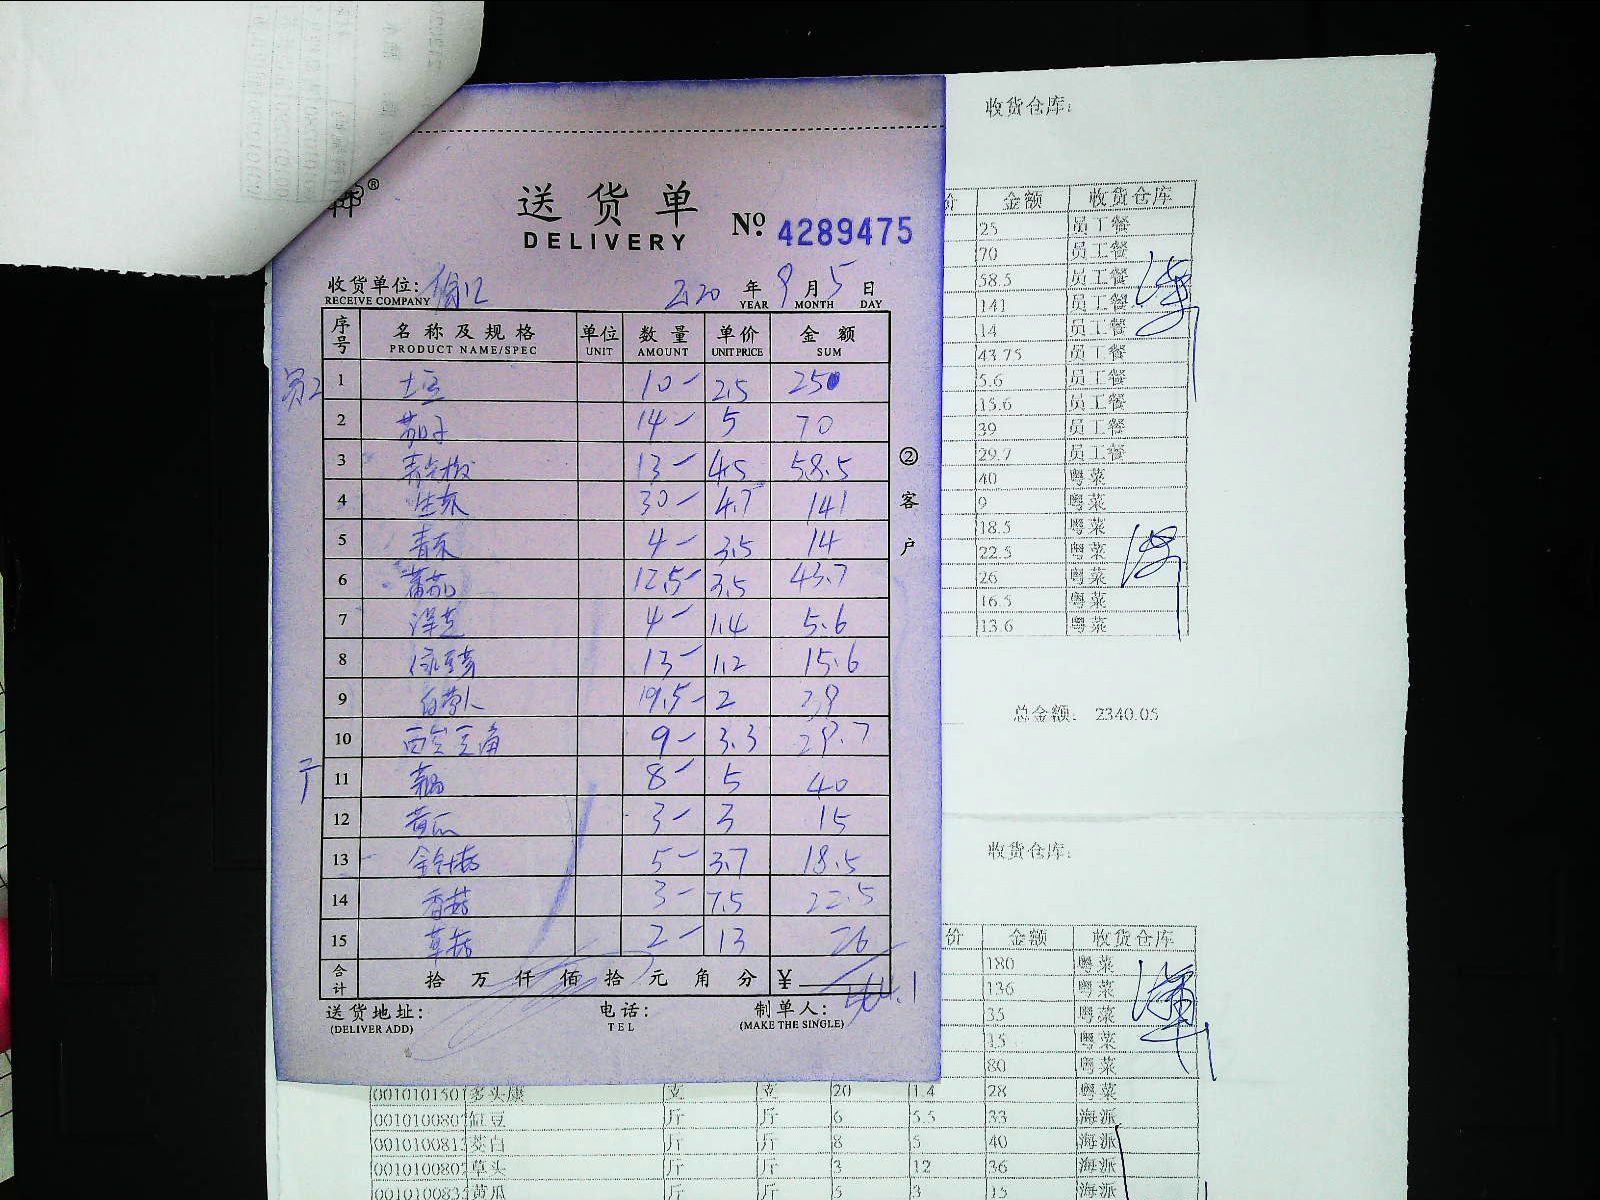 收货仓库:
送货单
DELIVERY
№ 4289475
收货单位:
RECEIVE COMPANY
2020 年 9 月 5 日
YEAR MONTH DAY
序号 名称及规格 单位 数量 单价 金额
PRODUCT NAME/SPEC UNIT AMOUNT UNIT PRICE SUM
1 土豆 10- 2.5 250
2 茄子 14- 5 70
3 13- 4.5 58.5
4 生菜 30- 4.7 141
5 青菜 4- 3.5 14
6 蕃茄 12.5- 3.5 43.7
7 4- 1.4 5.6
8 绿豆芽 13- 1.2 15.6
9 19.5- 2 39
10 豆角 9- 3.3 29.7
11 8- 5 40
12 黄瓜 3- 3 15
13 金针菇 5- 3.7 18.5
14 香菇 3- 7.5 22.5
15 草菇 2- 13 26
合计 拾 万 仟 佰 拾 元 角 分 ¥
送货地址:
(DELIVER ADD)
电话:
TEL
制单人:
(MAKE THE SINGLE)
② 客户
价 金额 收货仓库
25 员工餐
70 员工餐
58.5 员工餐
141 员工餐
14 员工餐
43.75 员工餐
5.6 员工餐
15.6 员工餐
39 员工餐
29.7 员工餐
40 粤菜
9 粤菜
18.5 粤菜
22.5 粤菜
26 粤菜
16.5 粤菜
13.6 粤菜
总金额: 2340.05
收货仓库:
价 金额 收货仓库
180 粤菜
136 粤菜
35 粤菜
15 粤菜
80 粤菜
支 支 20 1.4 28 粤菜
豇豆 斤 斤 6 5.5 33 海派
茭白 斤 斤 8 5 40 海派
草头 斤 斤 3 12 36 海派
黄瓜 斤 斤 5 3 15 海派